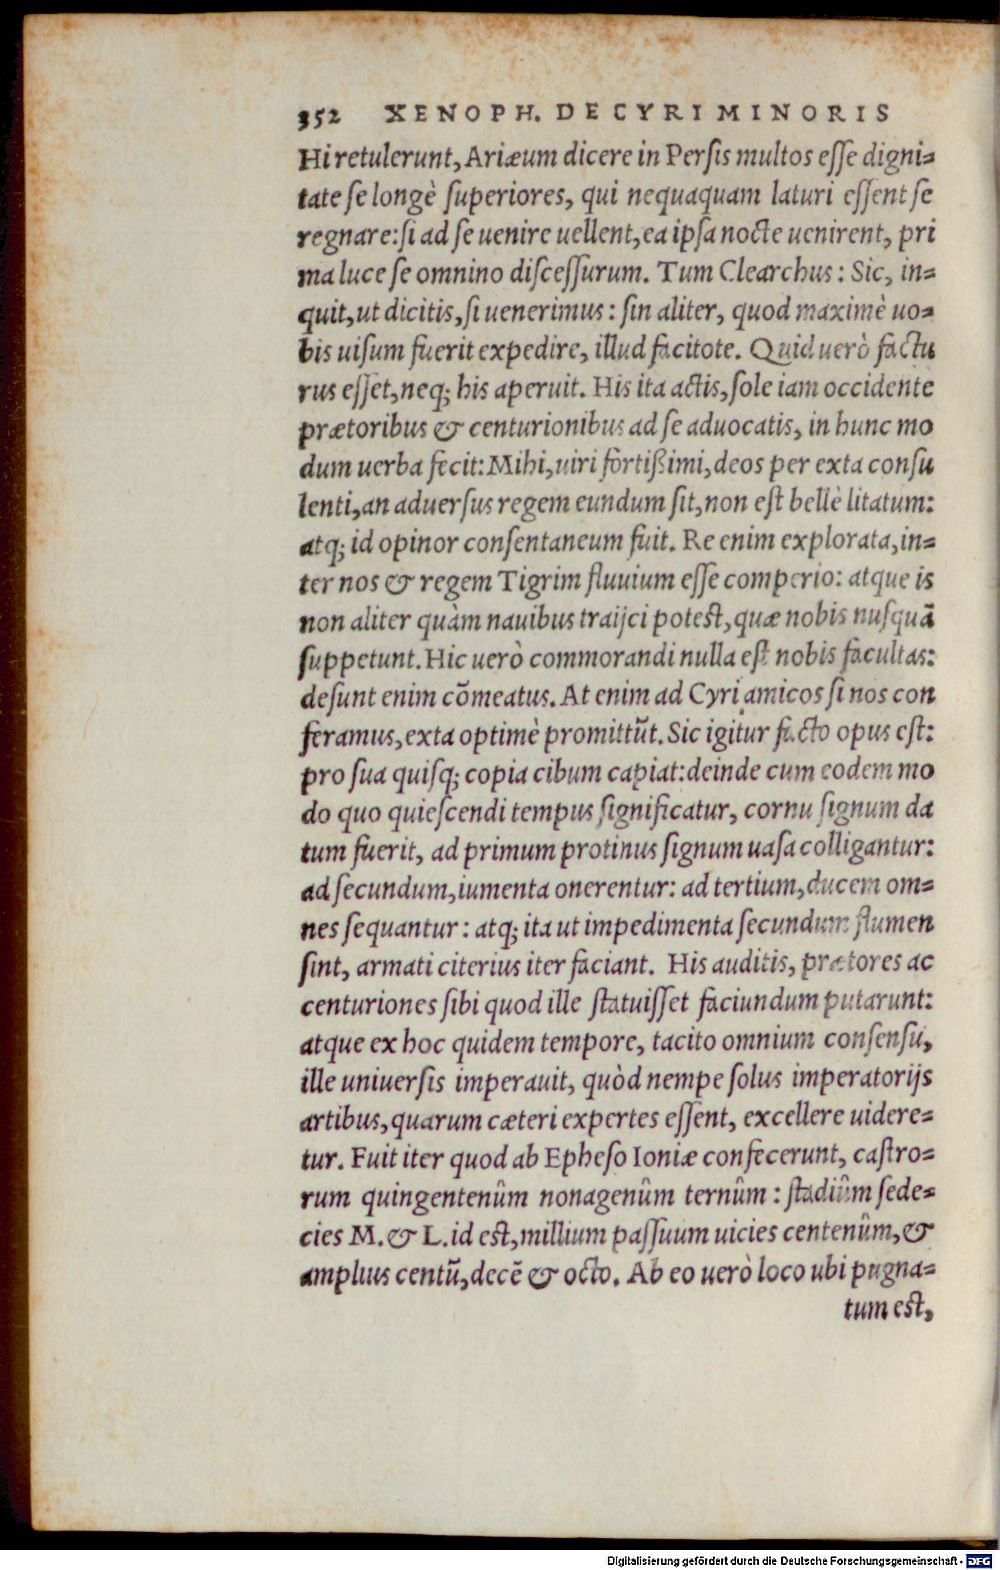 352 XENOPH. DE CYRI MINORIS
Hi retulerunt, Ariæum dicere in Persis multos esse digni-
tate se longè superiores, qui nequaquam laturi essent se
regnare: si ad se uenire uellent, ea ipsa nocte uenirent, pri
ma luce se omnino discessurum. Tum Clearchus: Sic, in-
quit, ut dicitis, si uenerimus: sin aliter, quod maximè uo-
bis uisum fuerit expedire, illud facitote. Quid uerò factu
rus esset, neq; his aperuit. His ita actis, sole iam occidente
prætoribus & centurionibus ad se aduocatis, in hunc mo
dum uerba fecit: Mihi, uiri fortißimi, deos per exta consu
lenti, an aduersus regem eundum sit, non est bellè litatum:
atq; id opinor consentaneum fuit. Re enim explorata, in-
ter nos & regem Tigrim fluuium esse comperio: atque is
non aliter quàm nauibus traijci potest, quæ nobis nusquã
suppetunt. Hic uerò commorandi nulla est nobis facultas:
desunt enim cõmeatus. At enim ad Cyri amicos si nos con
feramus, exta optimè promittũt. Sic igitur facto opus est:
pro sua quisq; copia cibum capiat: deinde cum eodem mo
do quo quiescendi tempus significatur, cornu signum da
tum fuerit, ad primum protinus signum uasa colligantur:
ad secundum, iumenta onerentur: ad tertium, ducem om-
nes sequantur: atq; ita ut impedimenta secundum flumen
sint, armati citerius iter faciant. His auditis, prætores ac
centuriones sibi quod ille statuisset faciundum putarunt:
atque ex hoc quidem tempore, tacito omnium consensu,
ille uniuersis imperauit, quòd nempe solus imperatorijs
artibus, quarum cæteri expertes essent, excellere uidere-
tur. Fuit iter quod ab Epheso Ioniæ confecerunt, castro-
rum quingentenûm nonagenûm ternûm: stadiûm sede-
cies M. & L. id est, millium passuum uicies centenûm, &
amplius centũ, decẽ & octo. Ab eo uerò loco ubi pugna-
tum est,
Digitalisierung gefördert durch die Deutsche Forschungsgemeinschaft - DFG